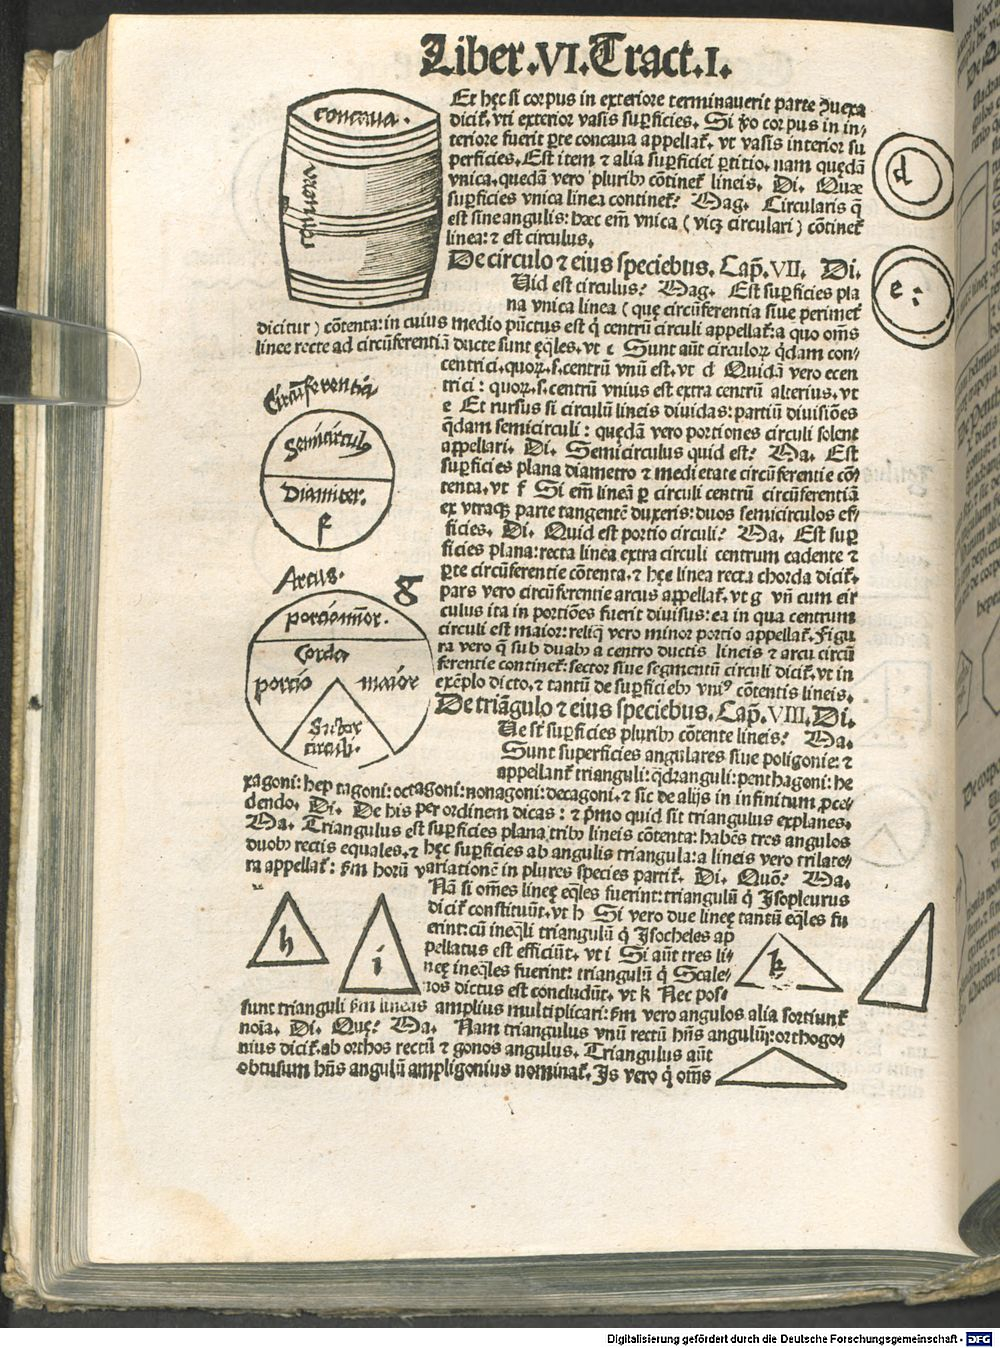 Liber.VI.Tract.I.
concaua.
conuexa
Et hęc si corpus in exteriore terminauerit parte ꝯuexa
dicit᷑. vti exterior vasis suꝑficies. Si ꝟo corpus in in-
teriore fuerit ꝑte concaua appellat᷑. vt vasis interior su
perficies. Est item ⁊ alia suꝑficiei ꝑtitio. nam quędā
vnica. quedā vero pluribꝰ cōtinet᷑ lineis. Di. Quæ
suꝑficies vnica linea continet᷑? Mag. Circularis q̄
est sine angulis: hæc em̄ vnica (vicꝫ circulari) cōtinet᷑
linea: ⁊ est circulus.
d
De circulo ⁊ eius speciebus. Cap̄. VII. Di.
Uid est circulus? Mag. Est suꝑficies pla
na vnica linea (quę circūferentia siue perimet᷑
dicitur) cōtenta: in cuius medio pūctus est q̇ centrū circuli appellat᷑: a quo om̄s
linee recte ad circūferentiā ducte sunt ęq̄les. vt c Sunt aūt circuloꝝ q̄dam con-
e:
centrici. quoꝝ. s. centrū vnū est. vt d Quidā vero ecen
trici: quoꝝ. s. centrū vnius est extra centrū alterius. vt
e Et rursus si circulū lineis diuidas: partiū diuisiōes
q̄dam semicirculi: quędā vero portiones circuli solent
appellari. Di. Semicirculus quid est? Ma. Est
suꝑficies plana diametro ⁊ medietate circūferentie cō-
tenta. vt f Si em̄ lineā ꝑ circuli centrū circūferentiā
ex vtraqꝫ parte tangentē duxeris: duos semicirculos ef-
ficies. Di. Quid est portio circuli? Ma. Est suꝑ
ficies plana: recta linea extra circuli centrum cadente ⁊
ꝑte circūferentie cōtenta. ⁊ hęc linea recta chorda dicit᷑.
pars vero circūferentie arcus appellat᷑. vt g vn̄ cum cir
culus ita in portiōes fuerit diuisus: ea in qua centrum
circuli est maior: reliq̄ vero minor portio appellat᷑. Figu
ra vero q̄ sub duabꝰ a centro ductis lineis ⁊ arcu circū
ferentie continet᷑: sector siue segmentū circuli dicit᷑. vt in
exēplo dicto. ⁊ tantū de suꝑficiebꝰ vniꝰ cōtentis lineis.
Circūferentia
Semicirculꝰ
Diamiter.
f
Arcus.
g
porcio minor.
Corda
porcio maior
Sector
circuli.
De triāgulo ⁊ eius speciebus. Cap̄. VIII. Di.
Ue st̄ suꝑficies pluribꝰ cōtente lineis? Ma.
Sunt superficies angulares siue poligonie: ⁊
appellant᷑ trianguli: q̄dranguli: penthagoni: he
xagoni: hep tagoni: octagoni: nonagoni: decagoni. ⁊ sic de alijs in infinitum ꝓce-
dendo. Di. De his per ordinem dicas: ⁊ p̄mo quid sit triangulus explanes.
Ma. Triangulus est suꝑficies plana tribꝰ lineis cōtenta: habēs tres angulos
duobꝰ rectis equales. ⁊ hęc suꝑficies ab angulis triangula: a lineis vero trilate-
ra appellat᷑: ẜm horū variationē in plures species partit᷑. Di. Quō? Ma.
Nā si om̄es lineę eq̄les fuerint: triangulū q̇ Isopleurus
dicit᷑ constituūt. vt h Si vero due lineę tantū eq̄les fu
erint: cū ineq̄li triangulū q̇ Isocheles ap
pellatus est efficiūt. vt i Si aūt tres li-
neę ineq̄les fuerint: triangulū q̇ Scale-
nos dictus est concludūt. vt k Nec pos-
h
i
k
sunt trianguli ẜm lineas amplius multiplicari: ẜm vero angulos alia sortiunt᷑
noīa. Di. Quę? Ma. Nam triangulus vnū rectū hn̄s angulū: orthogo-
nius dicit᷑. ab orthos rectū ⁊ gonos angulus. Triangulus aūt
obtusum hn̄s angulū ampligonius nominat᷑. Is vero q̇ om̄s
Digitalisierung gefördert durch die Deutsche Forschungsgemeinschaft - DFG